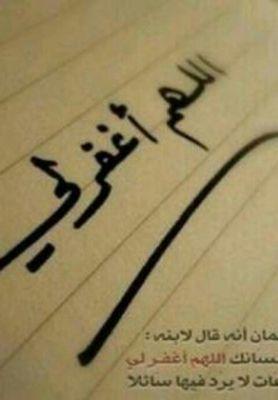 اللهم أغفر لي
مان أنه قال لابنه :
لسانك اللهم أغفر لي
عات لا يرد فيها سائلا